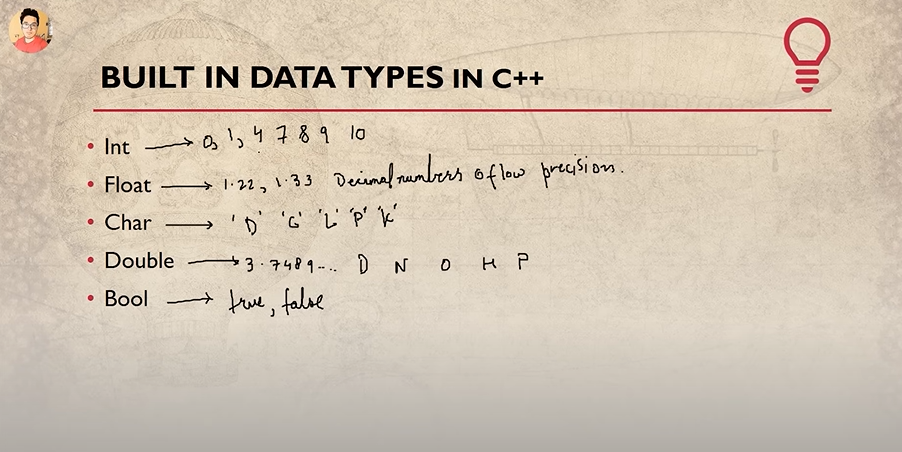 BUILT IN DATA TYPES IN C++
• Int → 0, 1, 4 7 8 9 10
• Float → 1.22, 1.33 Decimal numbers of low precisions.
• Char → 'D' 'G' 'L' 'P' 'K'
• Double → 3.7489... D N O H P
• Bool → true, false